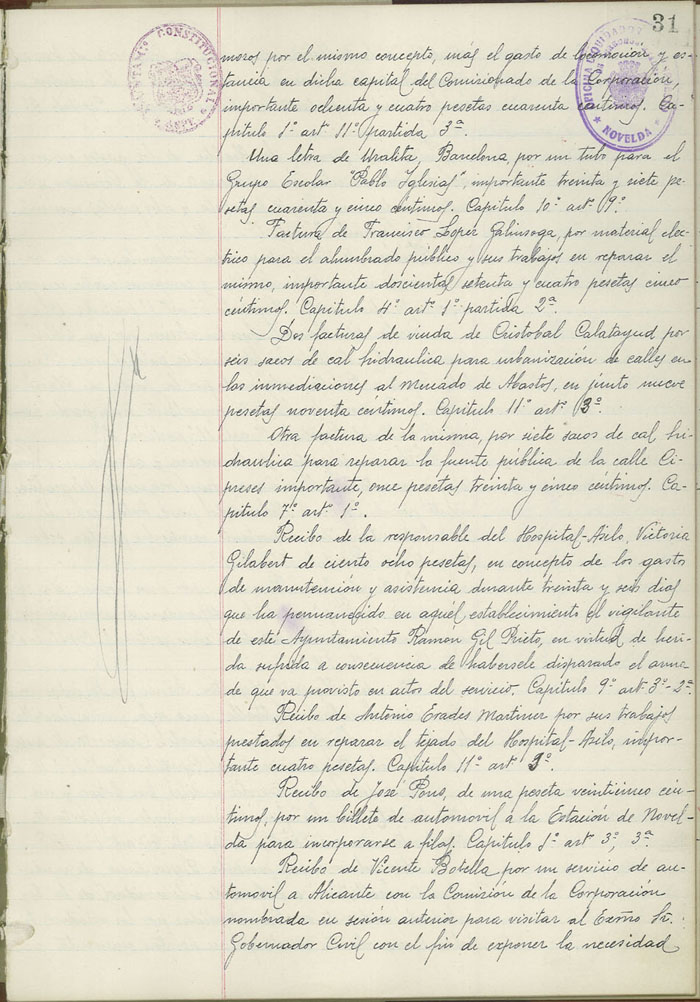 31
AYUNTAM.º CONSTITUCIONAL
ASPE
NOVELDA
meros por el mismo concepto, más el gasto de locomoción y es-
tancia en dicha capital del Comisionado de la Corporación,
importante ochenta y cuatro pesetas cuarenta céntimos. Ca-
pítulo 1º artº 11º partida 3ª.
Una letra de Uralita, Barcelona, por un tubo para el
Grupo Escolar "Pablo Iglesias", importante treinta y siete pe-
setas cuarenta y cinco céntimos. Capítulo 10º artº 9º.
Factura de Francisco Lopez Galinsoga, por material eléc-
trico para el alumbrado público y sus trabajos en reparar el
mismo, importante doscientas setenta y cuatro pesetas cinco
céntimos. Capítulo 4º artº 1º partida 2ª.
Dos facturas de viuda de Cristobal Calatayud por
seis sacos de cal hidraulica para urbanización de calles en
las inmediaciones al Mercado de Abastos, en junto nueve
pesetas noventa céntimos. Capítulo 11º artº 3º.
Otra factura de la misma, por siete sacos de cal hi-
draulica para reparar la fuente pública de la calle Ci-
preses importante, once pesetas treinta y cinco céntimos. Ca-
pítulo 7º artº 1º.
Recibo de la responsable del Hospital-Asilo, Victoria
Gilabert de ciento ocho pesetas, en concepto de los gastos
de manutención y asistencia durante treinta y seis dias
que ha permanecido en aquél establecimiento el vigilante
de este Ayuntamiento Ramon Gil Prieto, en virtud de heri-
da sufrida a consecuencia de habersele disparado el arma
de que va provisto en actos del servicio. Capítulo 9º artº 3º-2ª.
Recibo de Antonio Erades Martinez por sus trabajos
prestados en reparar el tejado del Hospital-Asilo, impor-
tante cuatro pesetas. Capítulo 11º artº 3º.
Recibo de José Pons, de una peseta veinticinco cén-
timos, por un billete de automovil á la Estación de Novel-
da para incorporarse a filas. Capítulo 1º artº 3º, 3ª.
Recibo de Vicente Botella por un servicio de au-
tomovil a Alicante con la Comisión de la Corporación
nombrada en sesión anterior para visitar al Exmo Sr.
Gobernador Civil con el fin de exponer la necesidad